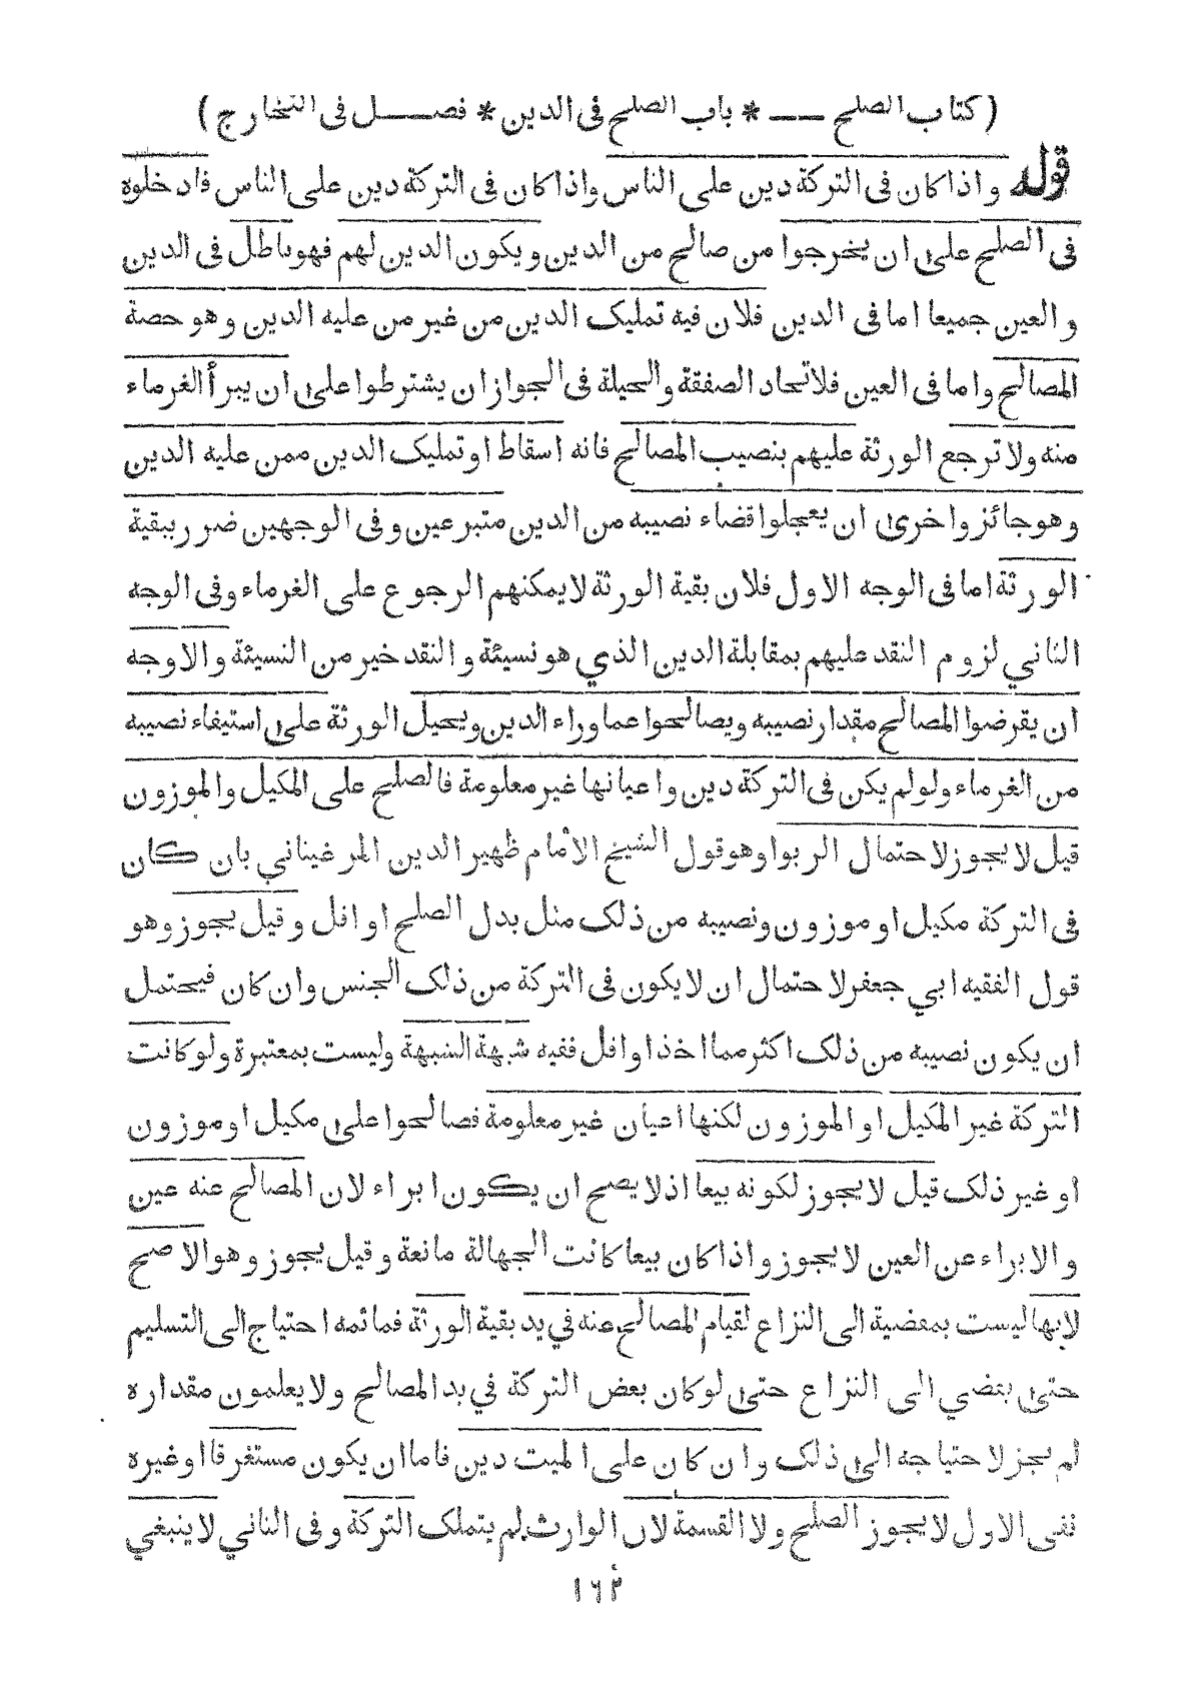 (كتاب الصلح ــــ * باب الصلح فى الدين * فصـــل فى التخارج)
قوله واذا كان فى التركة دين على الناس واذا كان فى التركة دين على الناس فادخلوه
فى الصلح على ان يخرجوا من صالح من الدين ويكون الدين لهم فهو باطل فى الدين
والعين جميعا اما فى الدين فلان فيه تمليك الدين من غير من عليه الدين وهو حصة
المصالح واما فى العين فلاتحاد الصفقة والحيلة فى الجواز ان يشترطوا على ان يبرأ الغرماء
منه ولا ترجع الورثة عليهم بنصيب المصالح فانه اسقاط او تمليك الدين ممن عليه الدين
وهو جائز واخرى ان يعجلوا قضاء نصيبه من الدين متبرعين وفى الوجهين ضرر ببقية
الورثة اما فى الوجه الاول فلان بقية الورثة لا يمكنهم الرجوع على الغرماء وفى الوجه
الثاني لزوم النقد عليهم بمقابلة الدين الذي هو نسيئة والنقد خير من النسيئة والاوجه
ان يقرضوا المصالح مقدار نصيبه ويصالحوا عما وراء الدين ويحيل الورثة على استيفاء نصيبه
من الغرماء ولو لم يكن فى التركة دين واعيانها غير معلومة فالصلح على المكيل والموزون
قيل لا يجوز لاحتمال الربوا وهو قول الشيخ الامام ظهير الدين المرغيناني بان كان
فى التركة مكيل او موزون ونصيبه من ذلك مثل بدل الصلح او اقل وقيل يجوز وهو
قول الفقيه ابي جعفر لاحتمال ان لا يكون فى التركة من ذلك الجنس وان كان فيحتمل
ان يكون نصيبه من ذلك اكثر مما اخذ او اقل ففيه شبهة الشبهة وليست بمعتبرة ولو كانت
التركة غير المكيل او الموزون لكنها اعيان غير معلومة فصالحوا على مكيل او موزون
او غير ذلك قيل لا يجوز لكونه بيعا اذ لا يصح ان يكون ابراء لان المصالح عنه عين
والابراء عن العين لا يجوز واذا كان بيعا كانت الجهالة مانعة وقيل يجوز وهو الاصح
لانها ليست بمفضية الى النزاع لقيام المصالح عنه في يد بقية الورثة فما ثمه احتياج الى التسليم
حتى يفضي الى النزاع حتى لو كان بعض التركة في يد المصالح ولا يعلمون مقداره
لم يجز لاحتياجه الى ذلك وان كان على الميت دين فاما ان يكون مستغرقا او غيره
ففى الاول لا يجوز الصلح ولا القسمة لان الوارث لم يتملك التركة وفى الثاني لا ينبغي
١٦٢